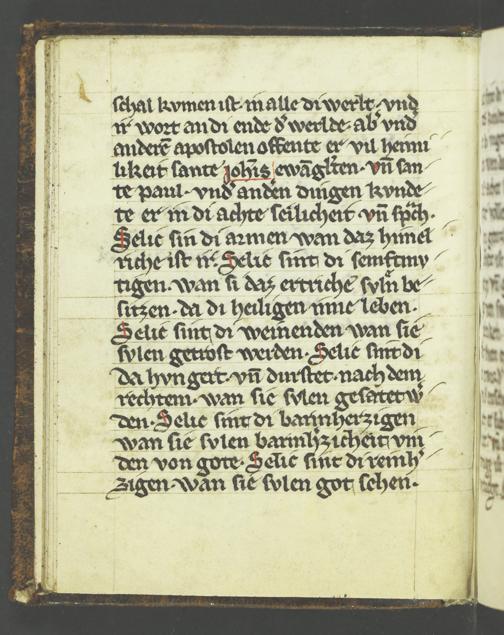 schal kvmen ist· in alle di werlt· vnd
ir wort an di ende d' werlde· ab' vnd
anderē apostolen offente er vil heimi
likeit sante Joh'is ewāg'lten· vn̄ san
te paul· vnd' anden dingen kvnde
te er in di achte seilicheit· vn̄ sp̄ch·
Selic sin di armen wan daz himel
riche ist ir· Selic sint di semftmv
tigen· wan si daz ertriche svln be-
sitzen· da di heiligen inne leben·
Selic sint di weinenden wan sie
svlen getrost werden· Selic sint di
da hvngert· vn̄ durstet· nach dem
rechtem· wan sie svlen gesatet w'
den· Selic sint di barmherzigen
wan sie svlen barmh'zicheit vin
den von gote· Selic sint di reinh'
zigen· wan sie svlen got sehen·